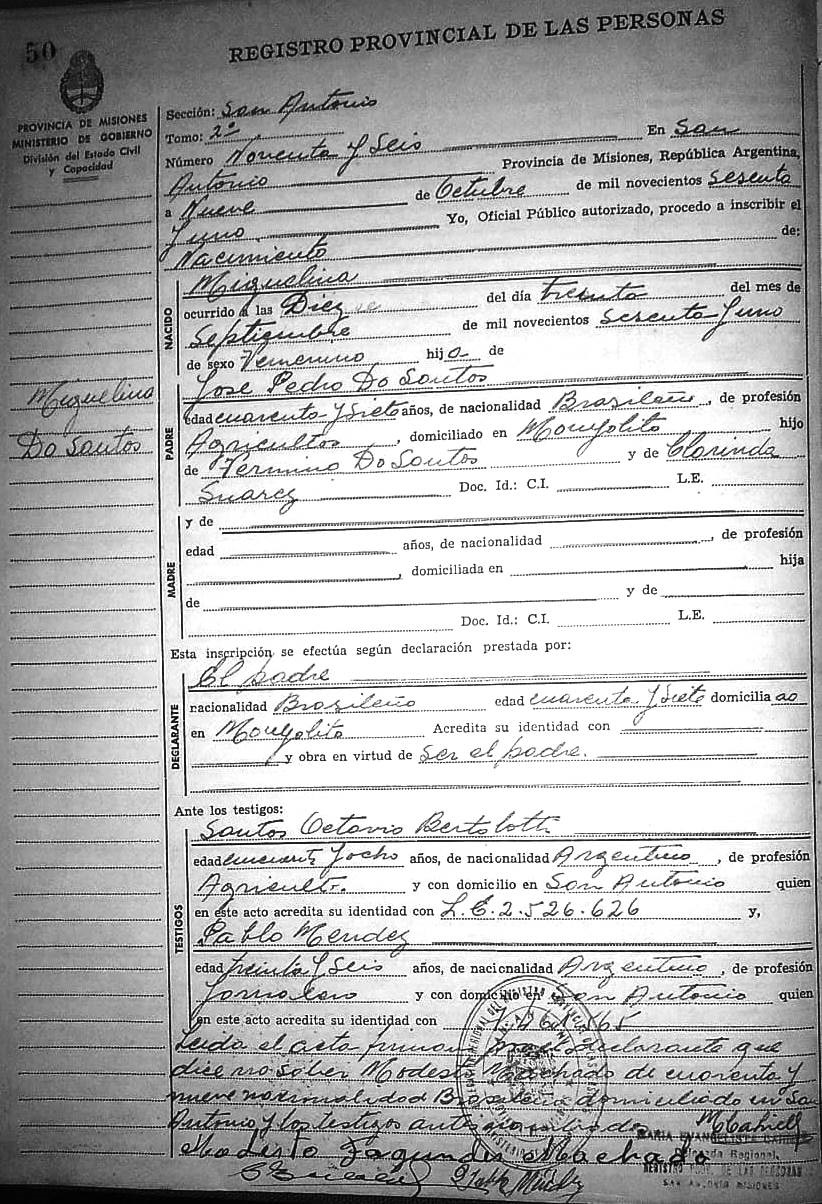 50
REGISTRO PROVINCIAL DE LAS PERSONAS
PROVINCIA DE MISIONES
MINISTERIO DE GOBIERNO
División del Estado Civil
y Capacidad
Sección: San Antonio
Tomo: 2º
Número Noventa y Seis En San
Antonio Provincia de Misiones, República Argentina,
a Nueve de Octubre de mil novecientos Sesenta
y uno Yo, Oficial Público autorizado, procedo a inscribir el
Nacimiento de:
NACIDO
Miguelina
ocurrido a las Diez del día treinta del mes de
Septiembre de mil novecientos Sesenta y uno
de sexo Femenino hija de
Miguelina
Do Santos
PADRE
Jose Pedro Do Santos
edad cuarenta y siete años, de nacionalidad Brasileño, de profesión
Agricultor, domiciliado en Mongolito hijo
de Fermino Do Santos y de Clorinda
Suarez Doc. Id.: C.I. L.E.
MADRE
y de
edad años, de nacionalidad , de profesión
, domiciliada en hija
de y de
Doc. Id.: C.I. L.E.
Esta inscripción se efectúa según declaración prestada por:
DECLARANTE
El padre
nacionalidad Brasileño edad cuarenta y siete domiciliado
en Mongolito Acredita su identidad con
y obra en virtud de Ser el padre.
Ante los testigos:
TESTIGOS
Santos Octavio Bertolotti
edad y ocho años, de nacionalidad Argentino, de profesión
Agricult. y con domicilio en San Antonio quien
en este acto acredita su identidad con L.E. 2.526.626 y,
Pablo Mendez
edad treinta y Seis años, de nacionalidad Argentino, de profesión
Jornalero y con domicilio en San Antonio quien
en este acto acredita su identidad con
Leida el acta declarante que
dice no saber Modesto Machado de cuarenta y
nueve nacionalidad Brasileña domiciliado en San
Antonio y los testigos
Modesto Fagundez Machado
MARIA EVANGELISTA
Regional
REGISTRO PROV. DE LAS PERSONAS
SAN ANTONIO MISIONES